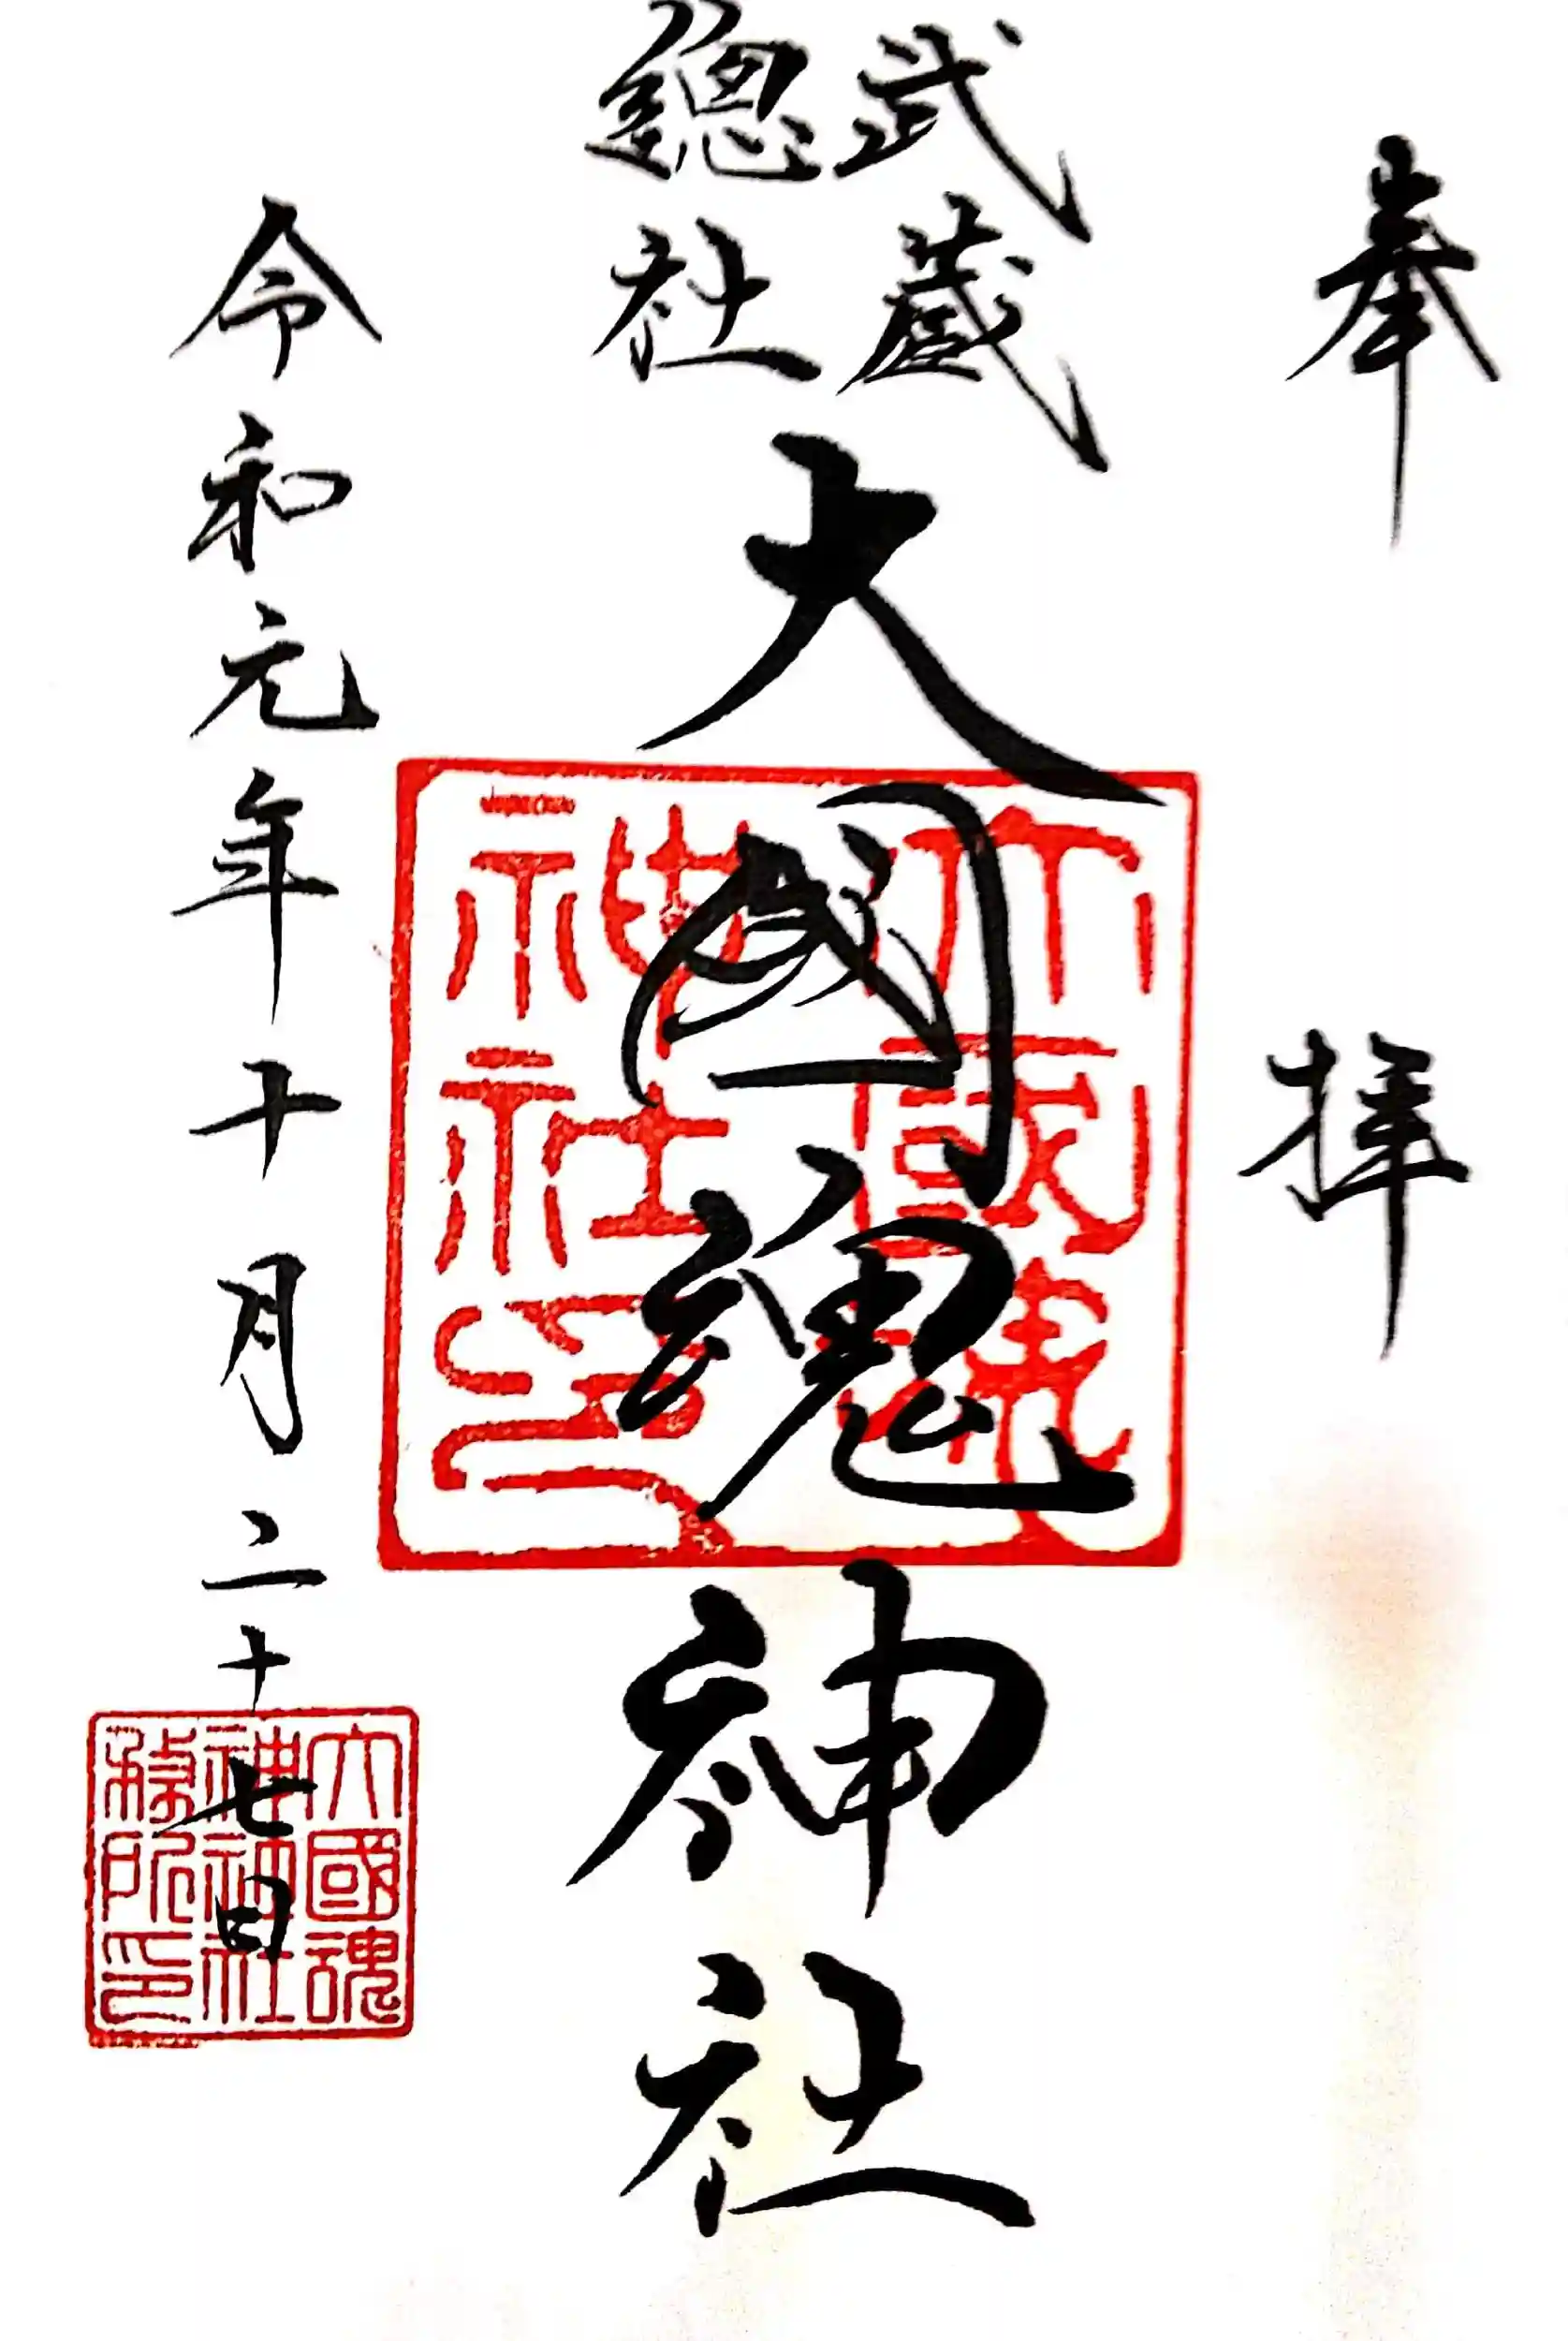 奉拝
武蔵
總社
大國魂神社
令和元年十月二十七日
大國魂
神社印
大國魂
神社
務所印